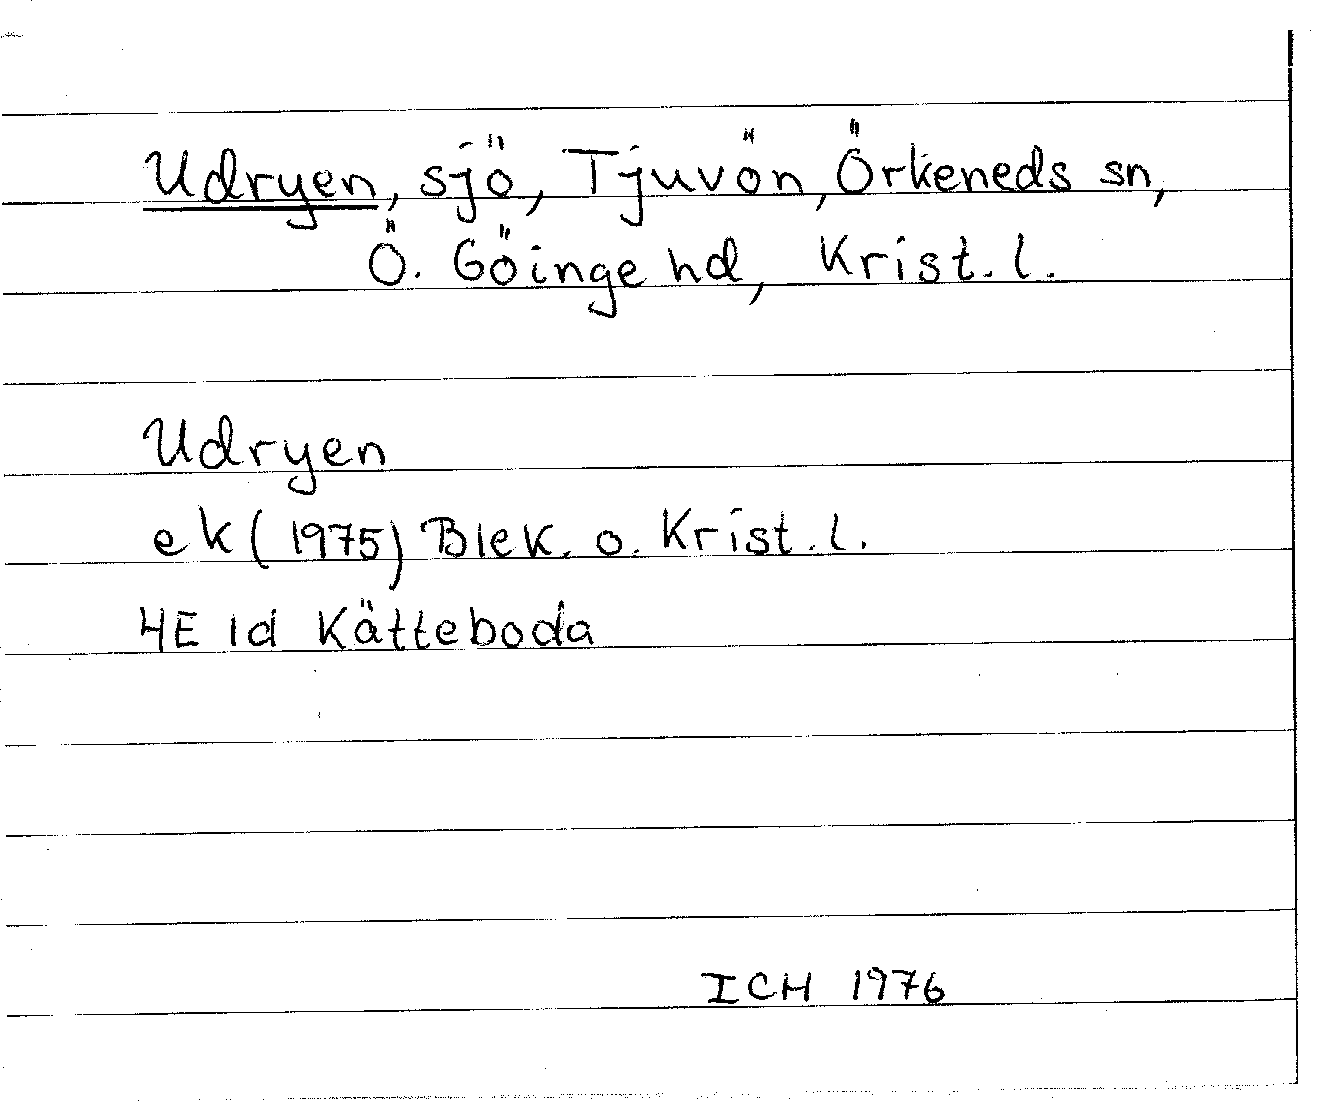 Udryen, sjö, Tjuvön, Örkeneds sn,
Ö. Göinge hd, Krist. l.
Udryen
ek (1975) Blek. o. Krist. l.
4E 1d Kätteboda
ICH 1976